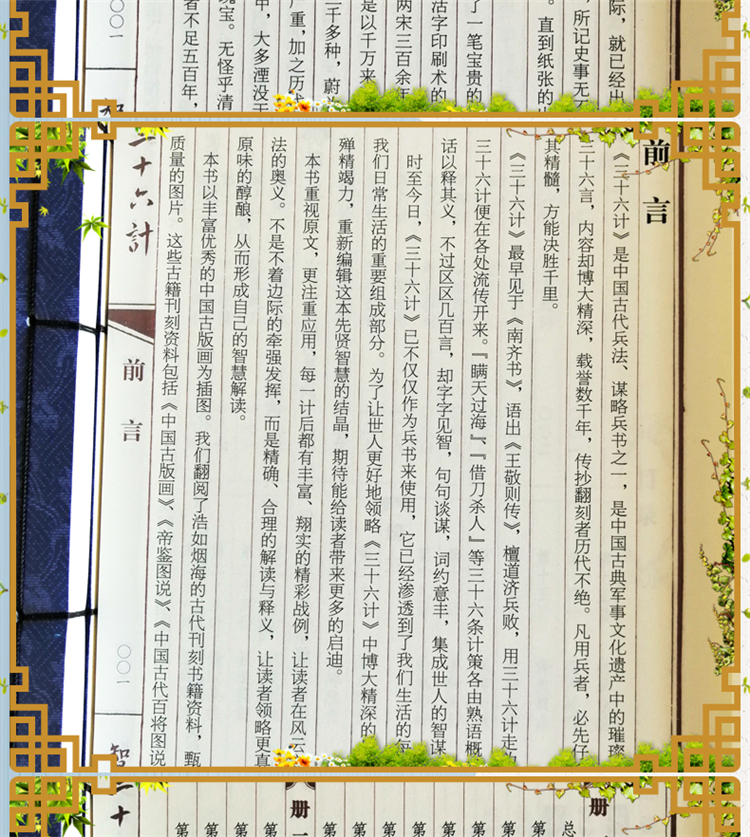 际，就已经出
，所记史事无
。直到纸张的
了一笔宝贵的
活字印刷术的
两宋三百余年
是以千万来
千多种，蔚
重，加之历
，大多湮没于
宝。无怪乎清
者不足五百年，
〇〇一
前言
《三十六计》是中国古代兵法、谋略兵书之一，是中国古典军事文化遗产中的璀璨
三十六言，内容却博大精深，载誉数千年，传抄翻刻者历代不绝。凡用兵者，必先仔
其精髓，方能决胜千里。
《三十六计》最早见于《南齐书》，语出《王敬则传》，檀道济兵败，用三十六计走
三十六计便在各处流传开来。『瞒天过海』、『借刀杀人』等三十六条计策各由熟语概
话以释其义，不过区区几百言，却字字见智，句句谈谋，词约意丰，集成世人的智谋
时至今日，《三十六计》已不仅仅作为兵书来使用，它已经渗透到了我们生活的每
我们日常生活的重要组成部分。为了让世人更好地领略《三十六计》中博大精深的
殚精竭力，重新编辑这本先贤智慧的结晶，期待能给读者带来更多的启迪。
本书重视原文，更注重应用，每一计后都有丰富、翔实的精彩战例，让读者在风云
法的奥义。不是不着边际的牵强发挥，而是精确、合理的解读与释义，让读者领略更真
原味的醇酿，从而形成自己的智慧解读。
本书以丰富优秀的中国古版画为插图。我们翻阅了浩如烟海的古代刊刻书籍资料，甄
质量的图片。这些古籍刊刻资料包括《中国古版画》、《帝鉴图说》、《中国古代百将图说
二十六計
前言
〇〇一
智二十
册
总
第
第
第
第
第
第
第
第
册一
第
第
第
第